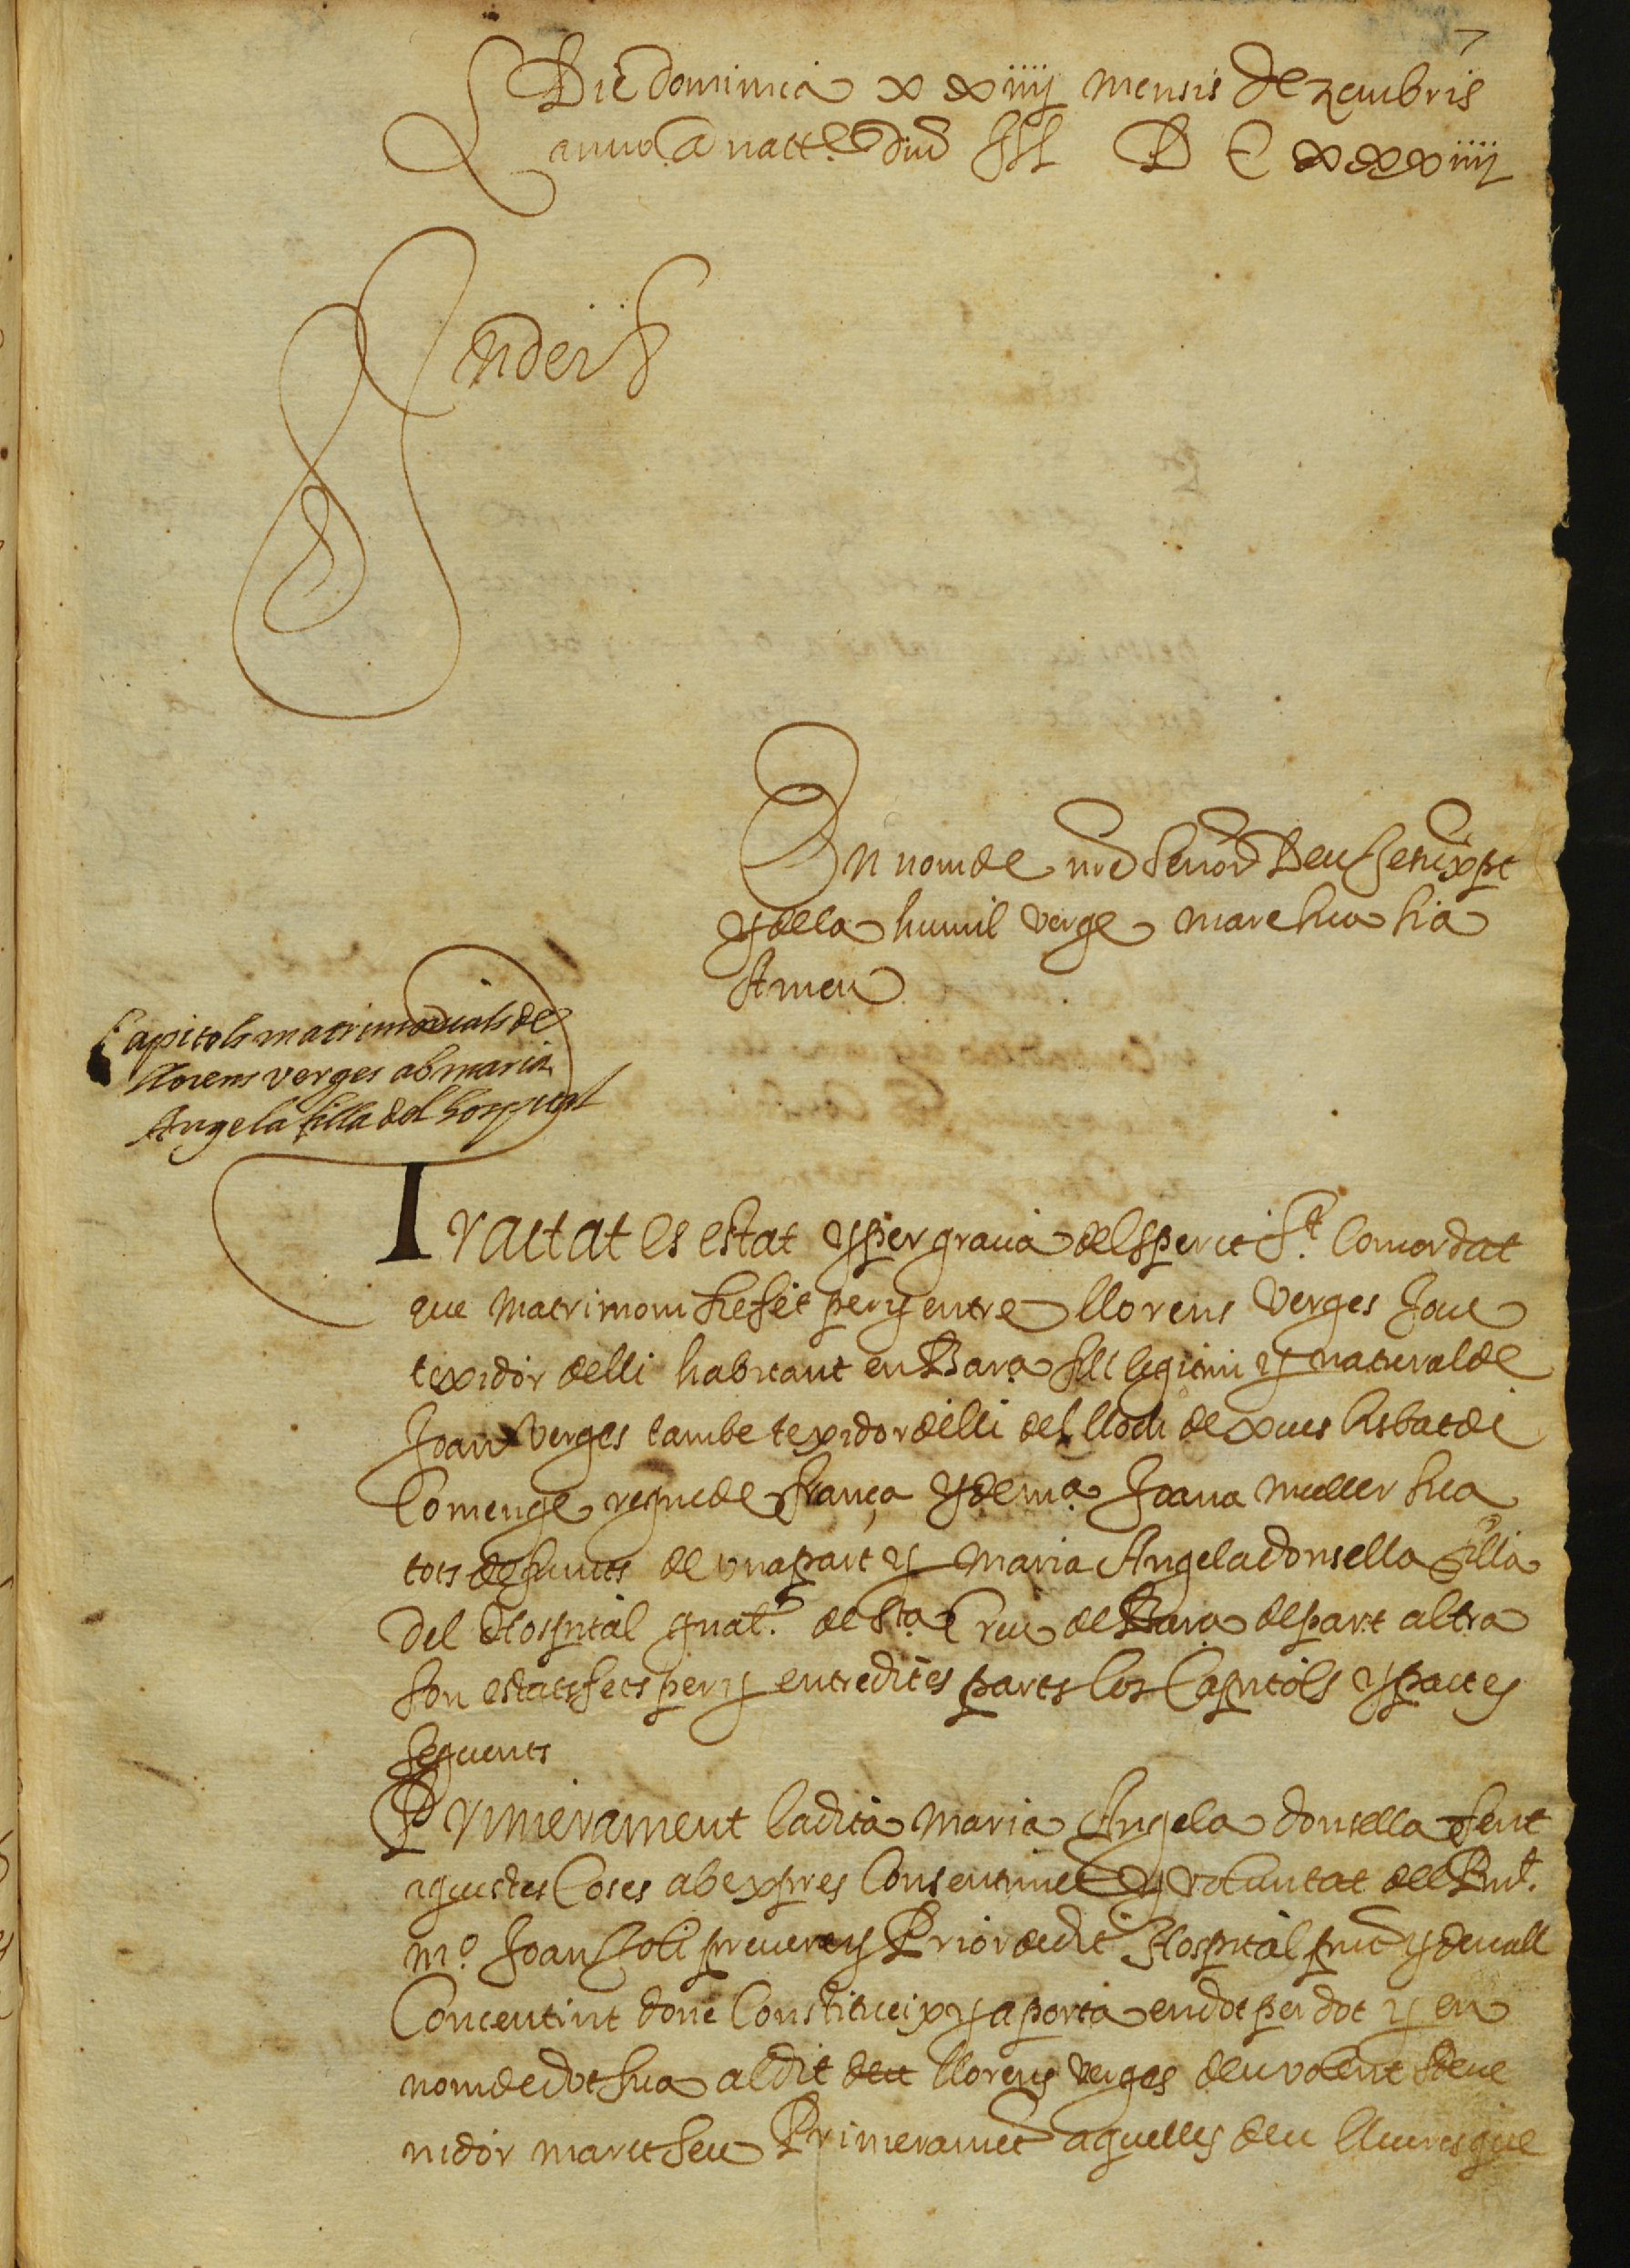 7
Die dominica xxiiij mensis dezembris
anno a natt.e Dni M D C xxxiiij
En nom de nre Senor Deu Jesuxpt
y de la humil verge mare sua sia
Amen
Capitols matrimonials de
llorens verges ab maria
Angela filla del hospital
Tractat es estat y per gracia del sperit St. Concordat
que matrimoni se fet per y entre llorens Verges Jove
texidor de lli habitant en Bara. fill legitim y natural de
Joan Verges tambe texidor de lli del lloch de xues bisbat de
Comenge regne de frança y de ma. Joana muller sua
tots defuncts de una part y Maria Angela donsella filla
del Hospital gnal. de Sta. Creu de Bara. de part altra
son estats fets per y entre dites parts los Capitols y pactes
seguents
Primerament la dita Maria Angela donsella fent
aquestes Coses ab expres Consentimet y voluntat del Rnt.
mo. Joan Coli prevere y Prior de dit Hospital pnt y devall
Concentint done Constitueix y aporta en dot per dot y en
nom de dot sua al dit deu llorens verges devolent deve
nidor marit seu Primeramet aquelles deu lliures que